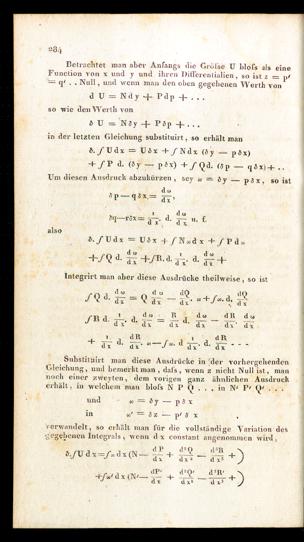 284
Betrachtet man aber Anfangs die Größe U bloſs als eine
Function von x und y und ihren Differentialien, so ist z = p'
= q' . . Null, und wenn man den oben gegebenen Werth von
d U = N d y + P d p + ...
so wie den Werth von
δ U = N δ y + P δ p + ...
in der letzten Gleichung substituirt, so erhält man
δ. ∫ U d x = U δ x + ∫ N d x (δ y — p δ x)
+ ∫ P d. (δ y — p δ x) + ∫ Q d. (δ p — q δ x) + ..
Um diesen Ausdruck abzukürzen, sey ω = δ y — p δ x, so ist
δ p — q δ x = dω/dx,
δq—rδx = 1/dx. d. dω/dx u. f.
also
δ. ∫ U d x = U δ x + ∫ N ω d x + ∫ P d ω
+ ∫ Q. d. dω/dx + ∫ R. d. 1/dx. d. dω/dx +
Integrirt man aber diese Ausdrücke theilweise, so ist
∫ Q d. dω/dx = Q dω/dx — dQ/dx. ω + ∫ ω. d. dQ/dx
∫ R d. 1/dx. d. dω/dx = R/dx d. dω/dx — dR/dx dω/dx
+ 1/dx. d. dR/dx. ω — ∫ ω. d 1/dx. d. dR/dx - - -
Substituirt man diese Ausdrücke in der vorhergehenden
Gleichung, und bemerkt man, daſs, wenn z nicht Null ist, man
noch einer zweyten, dem vorigen ganz ähnlichen Ausdruck
erhält, in welchem man bloſs N P Q . . . in N' P' Q' . . .
und ω = δ y — p δ x
in ω' = δ z — p' δ x
verwandelt, so erhält man für die vollständige Variation des
gegebenen Integrals, wenn d x constant angenommen wird,
δ. ∫ U d x = ∫ ω d x (N — dP/dx + d²Q/dx² — d³R/dx³ +)
+ ∫ ω' d x (N' — dP'/dx + d²Q'/dx² — d³R'/dx³ +)